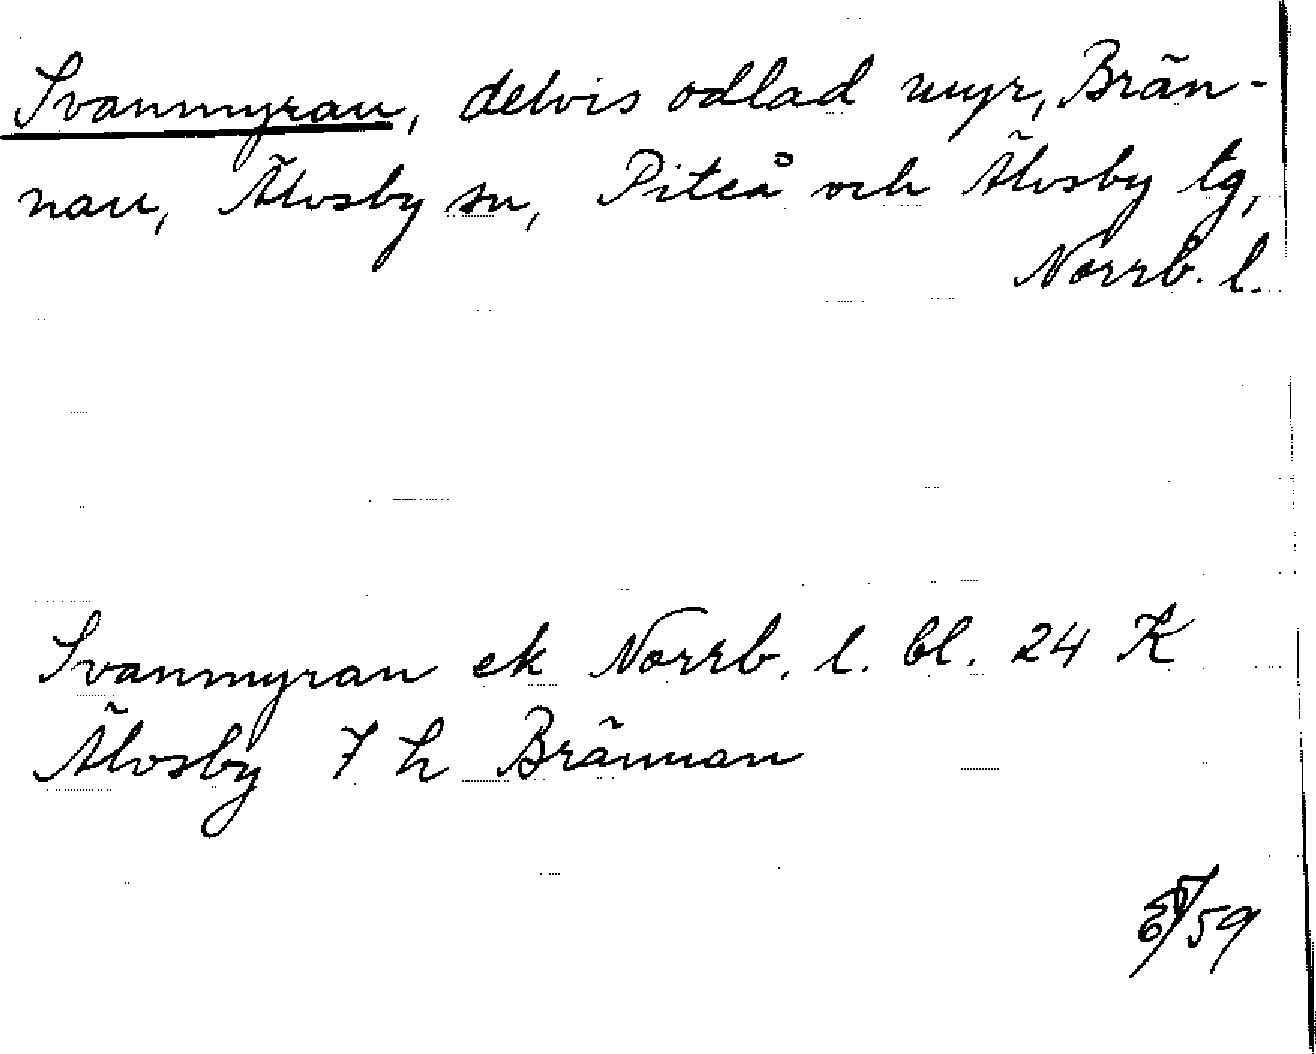 Svanmyran, delvis odlad myr, Brän-
nan, Älvsby sn, Piteå och Älvsby tg,
Norrb. l.
Svanmyran ek Norrb. l. bl. 24 K
Älvsby 7 h Brännan
59